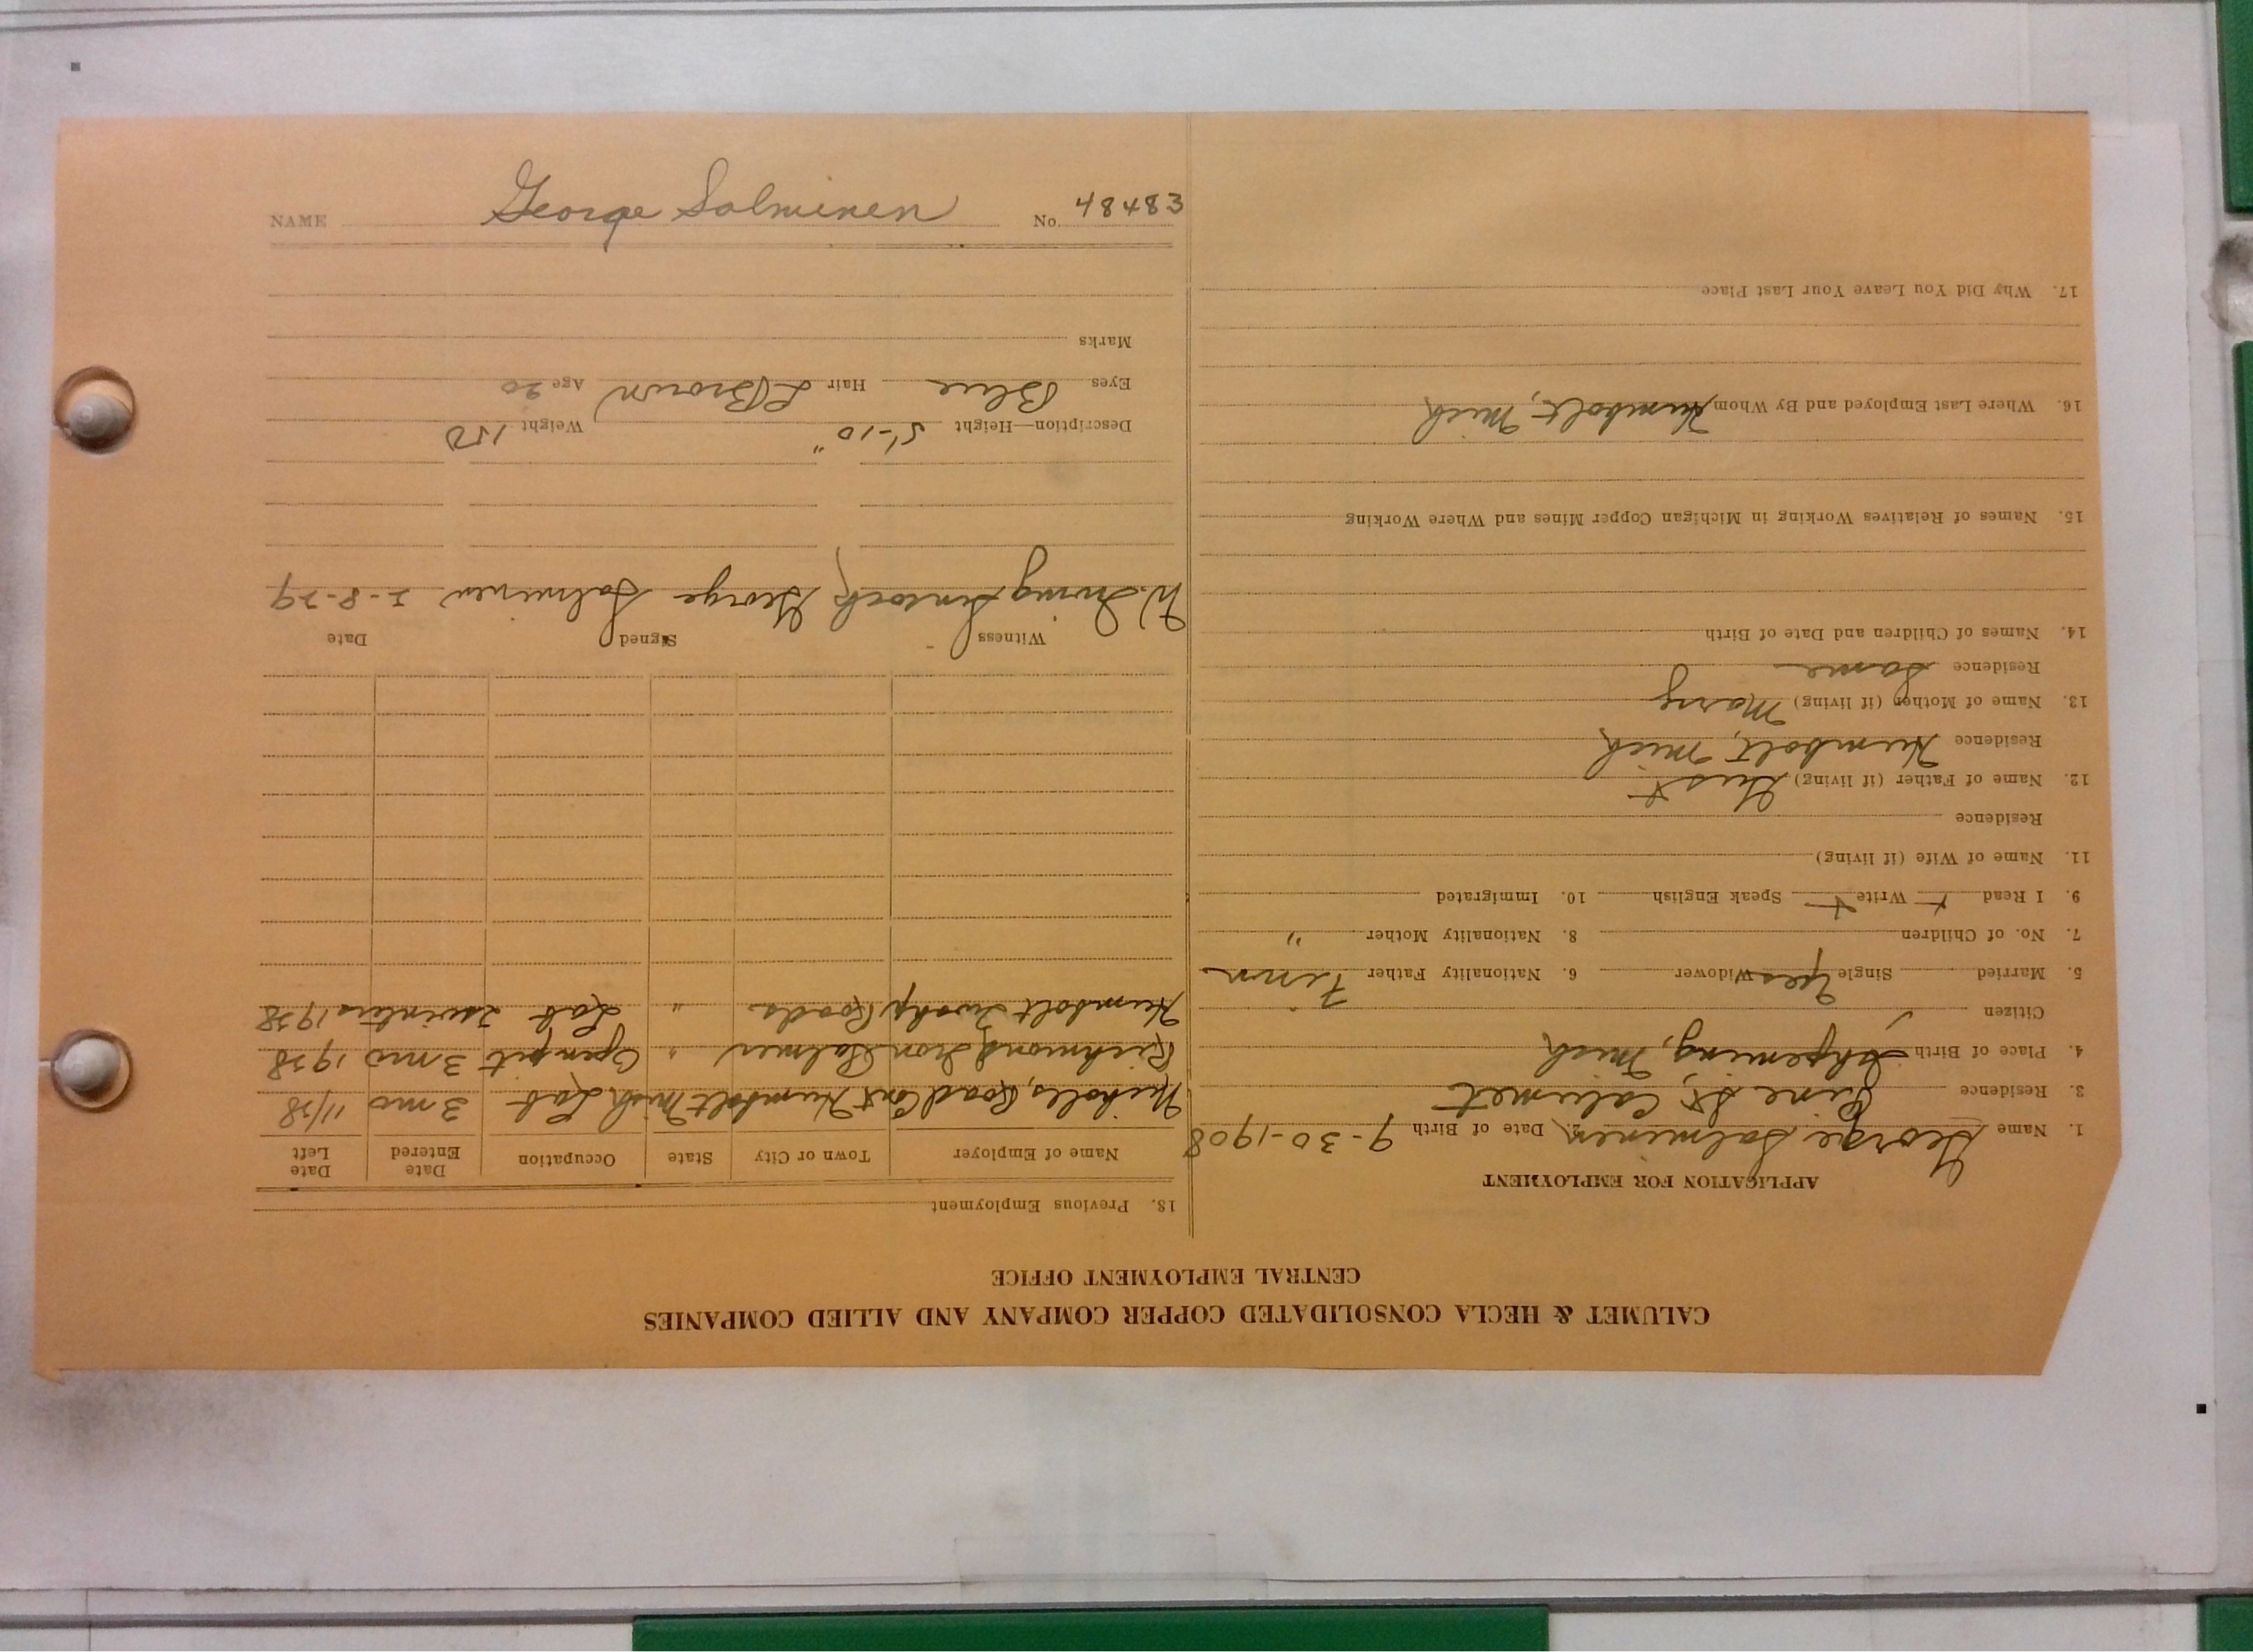 CALUMET & HECLA CONSOLIDATED COPPER COMPANY AND ALLIED COMPANIES
CENTRAL EMPLOYMENT OFFICE
APPLICATION FOR EMPLOYMENT
1. Name George Salminen Date of Birth 9-30-1908
3. Residence Pine St, Calumet
4. Place of Birth Ishpeming, Mich
Citizen
5. Married Single Yes Widower 6. Nationality Father Finn
7. No. of Children 8. Nationality Mother "
9. I Read + Write + Speak English 10. Immigrated
11. Name of Wife (if living)
Residence
12. Name of Father (if living) Gust
Residence Humbolt, Mich
13. Name of Mother (if living) Mary
Residence Same
14. Names of Children and Date of Birth
15. Names of Relatives Working in Michigan Copper Mines and Where Working
16. Where Last Employed and By Whom Humbolt, Mich
17. Why Did You Leave Your Last Place
18. Previous Employment
Name of Employer Town or City State Occupation Date Entered Date Left
Nichols, Road Cont Humbolt Mich Lab 3 mo 11/28
Richmond Iron Palmer " Open pit 3 mo 1928
Humbolt Twshp Roads " Lab 2 winters 1928
Witness Signed Date
W. Irving George Salminen 2-8-29
Description—Height 5'-10" Weight 150
Eyes Blue Hair L Brown Age 20
Marks
NAME George Salminen No. 48483